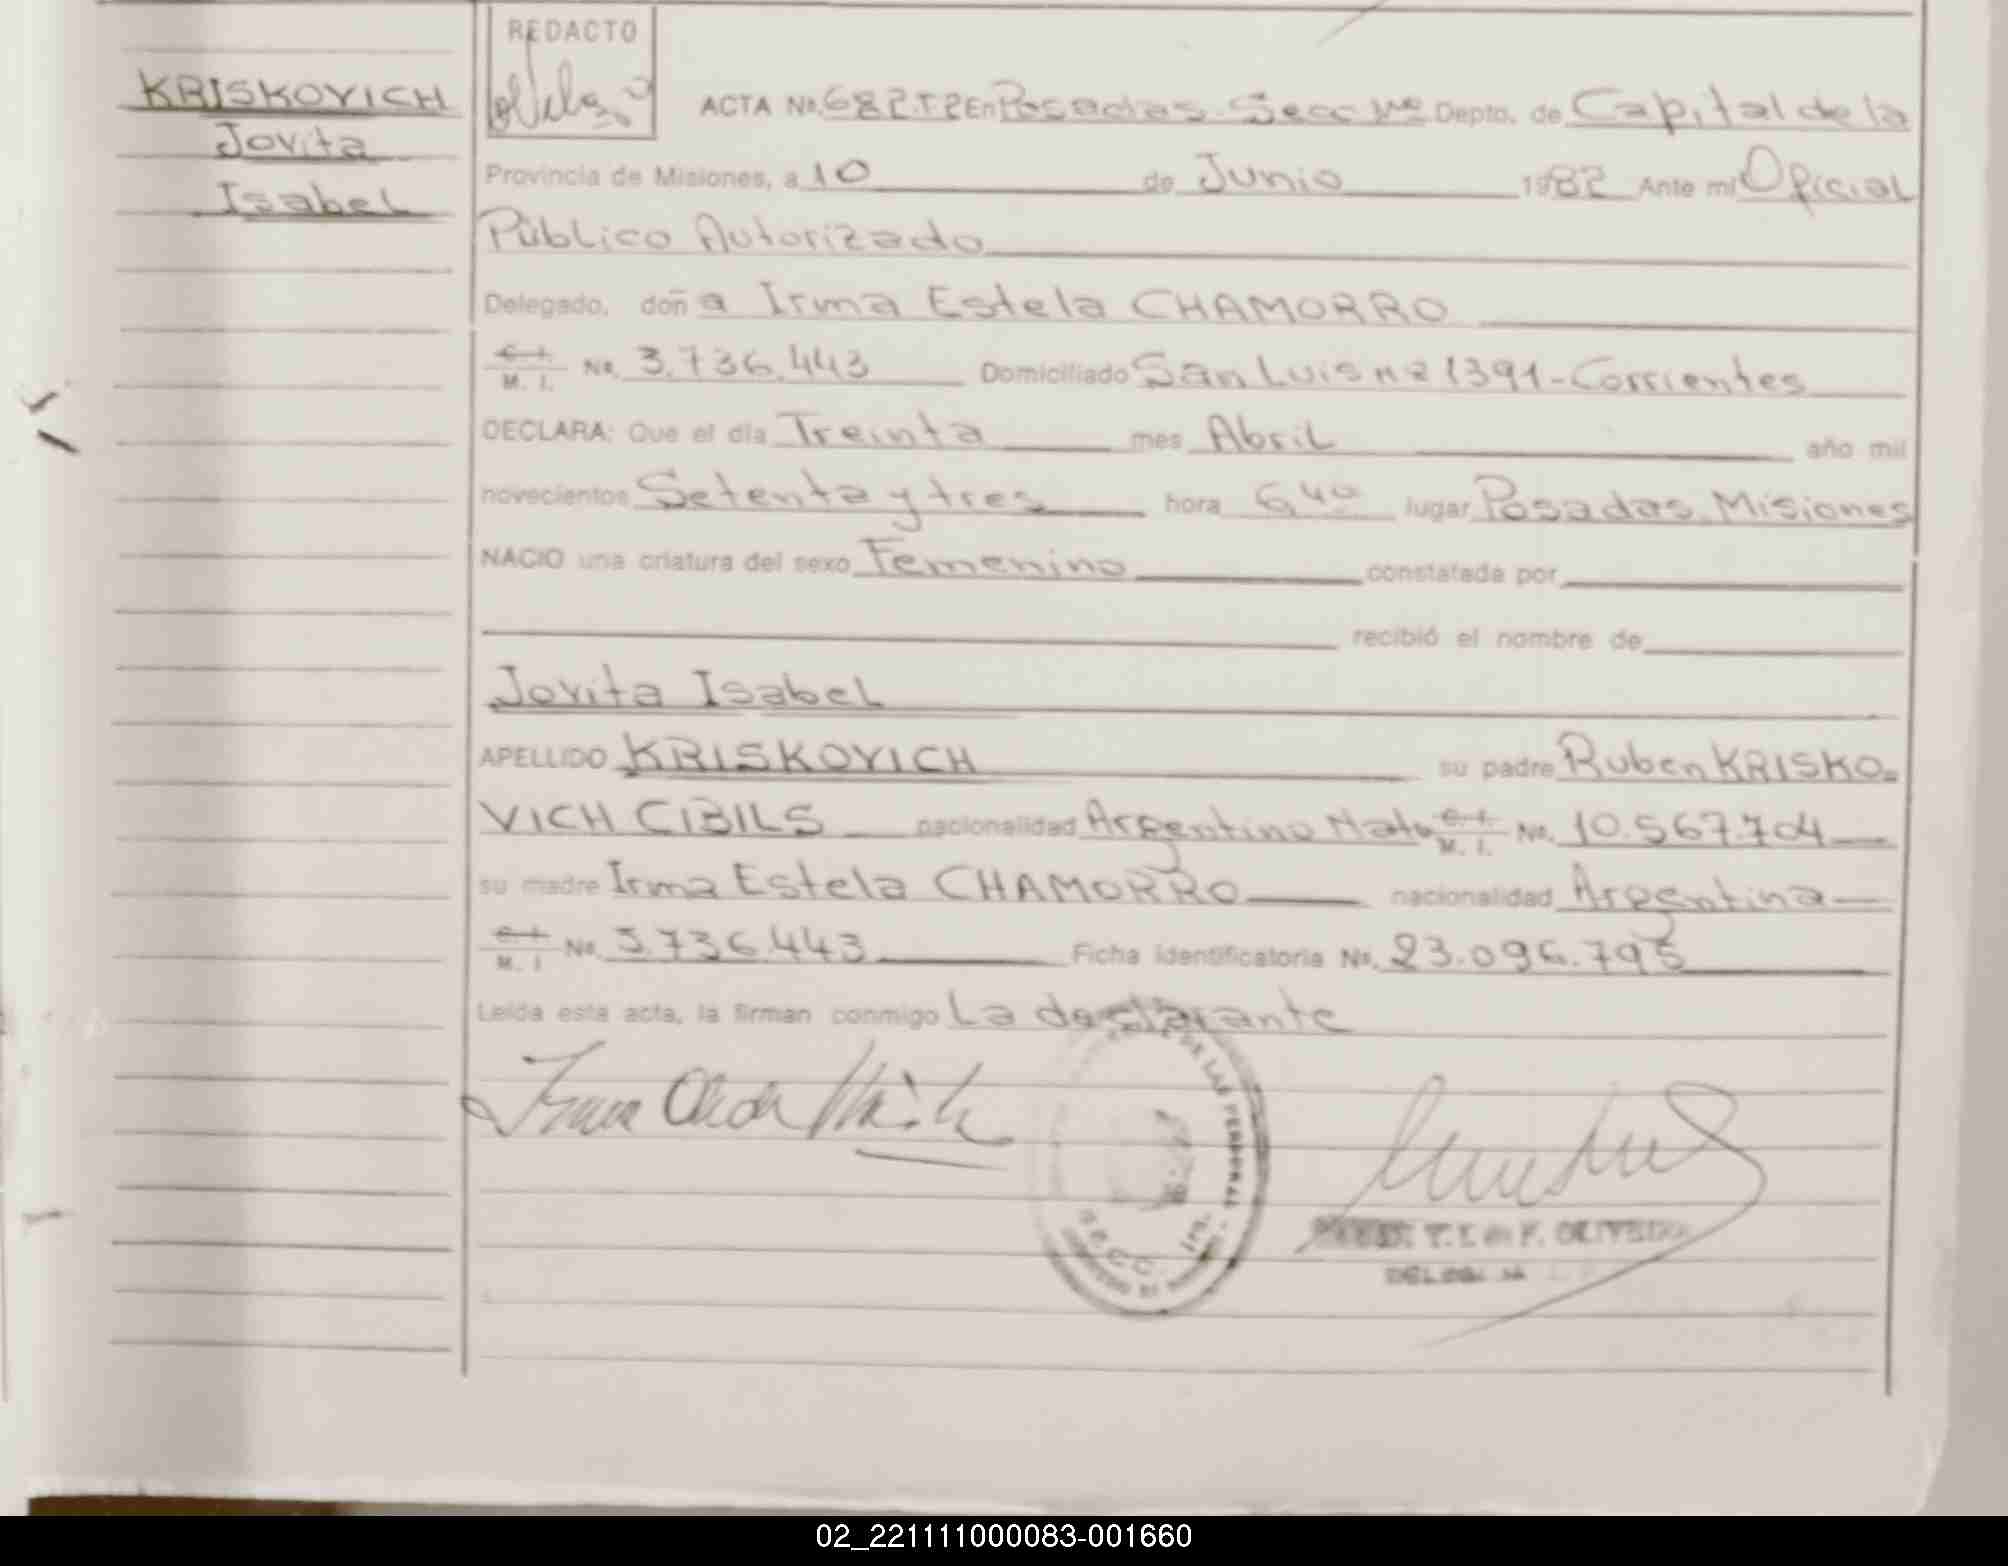 KRISKOVICH
Jovita
Isabel
REDACTO
ACTA No. 682.T2 En Posadas. Secc Depto. de Capital de la
Provincia de Misiones, a 10 de Junio 1982 Ante mi Oficial
Público Autorizado
Delegado, doña Irma Estela CHAMORRO
C. I.
M. I. No. 3.736.443 Domiciliado San Luis nº 1391-Corrientes
DECLARA: Que el día Treinta mes Abril año mil
novecientos Setenta y tres hora 6,40 lugar Posadas. Misiones
NACIO una criatura del sexo Femenino constatada por
recibió el nombre de
Jovita Isabel
APELLIDO KRISKOVICH su padre Ruben KRISKO=
VICH CIBILS nacionalidad Argentino Nato C. I. M. I. No. 10.567.704
su madre Irma Estela CHAMORRO nacionalidad Argentina
C. I.
M. I No. 3.736.443 Ficha identificatoria No. 23.096.795
Leída esta acta, la firman conmigo La declarante
DE LAS PERSONAS
SECC. 1ra.
T. I. de F. OLIVEIRA
02_221111000083-001660